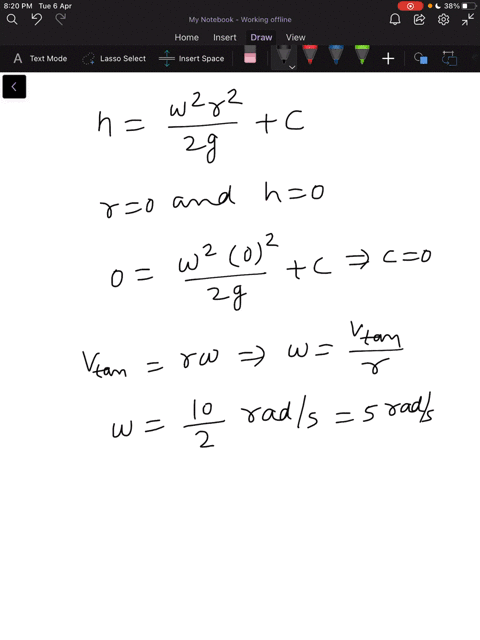 8:20 PM Tue 6 Apr
My Notebook - Working offline
38%
Home Insert Draw View
A Text Mode Lasso Select Insert Space
h = w²r²/2g + C
r=0 and h=0
0 = w²(0)²/2g + C ⇒ C=0
Vtan = rw ⇒ w = Vtan/r
w = 10/2 rad/s = 5 rad/s